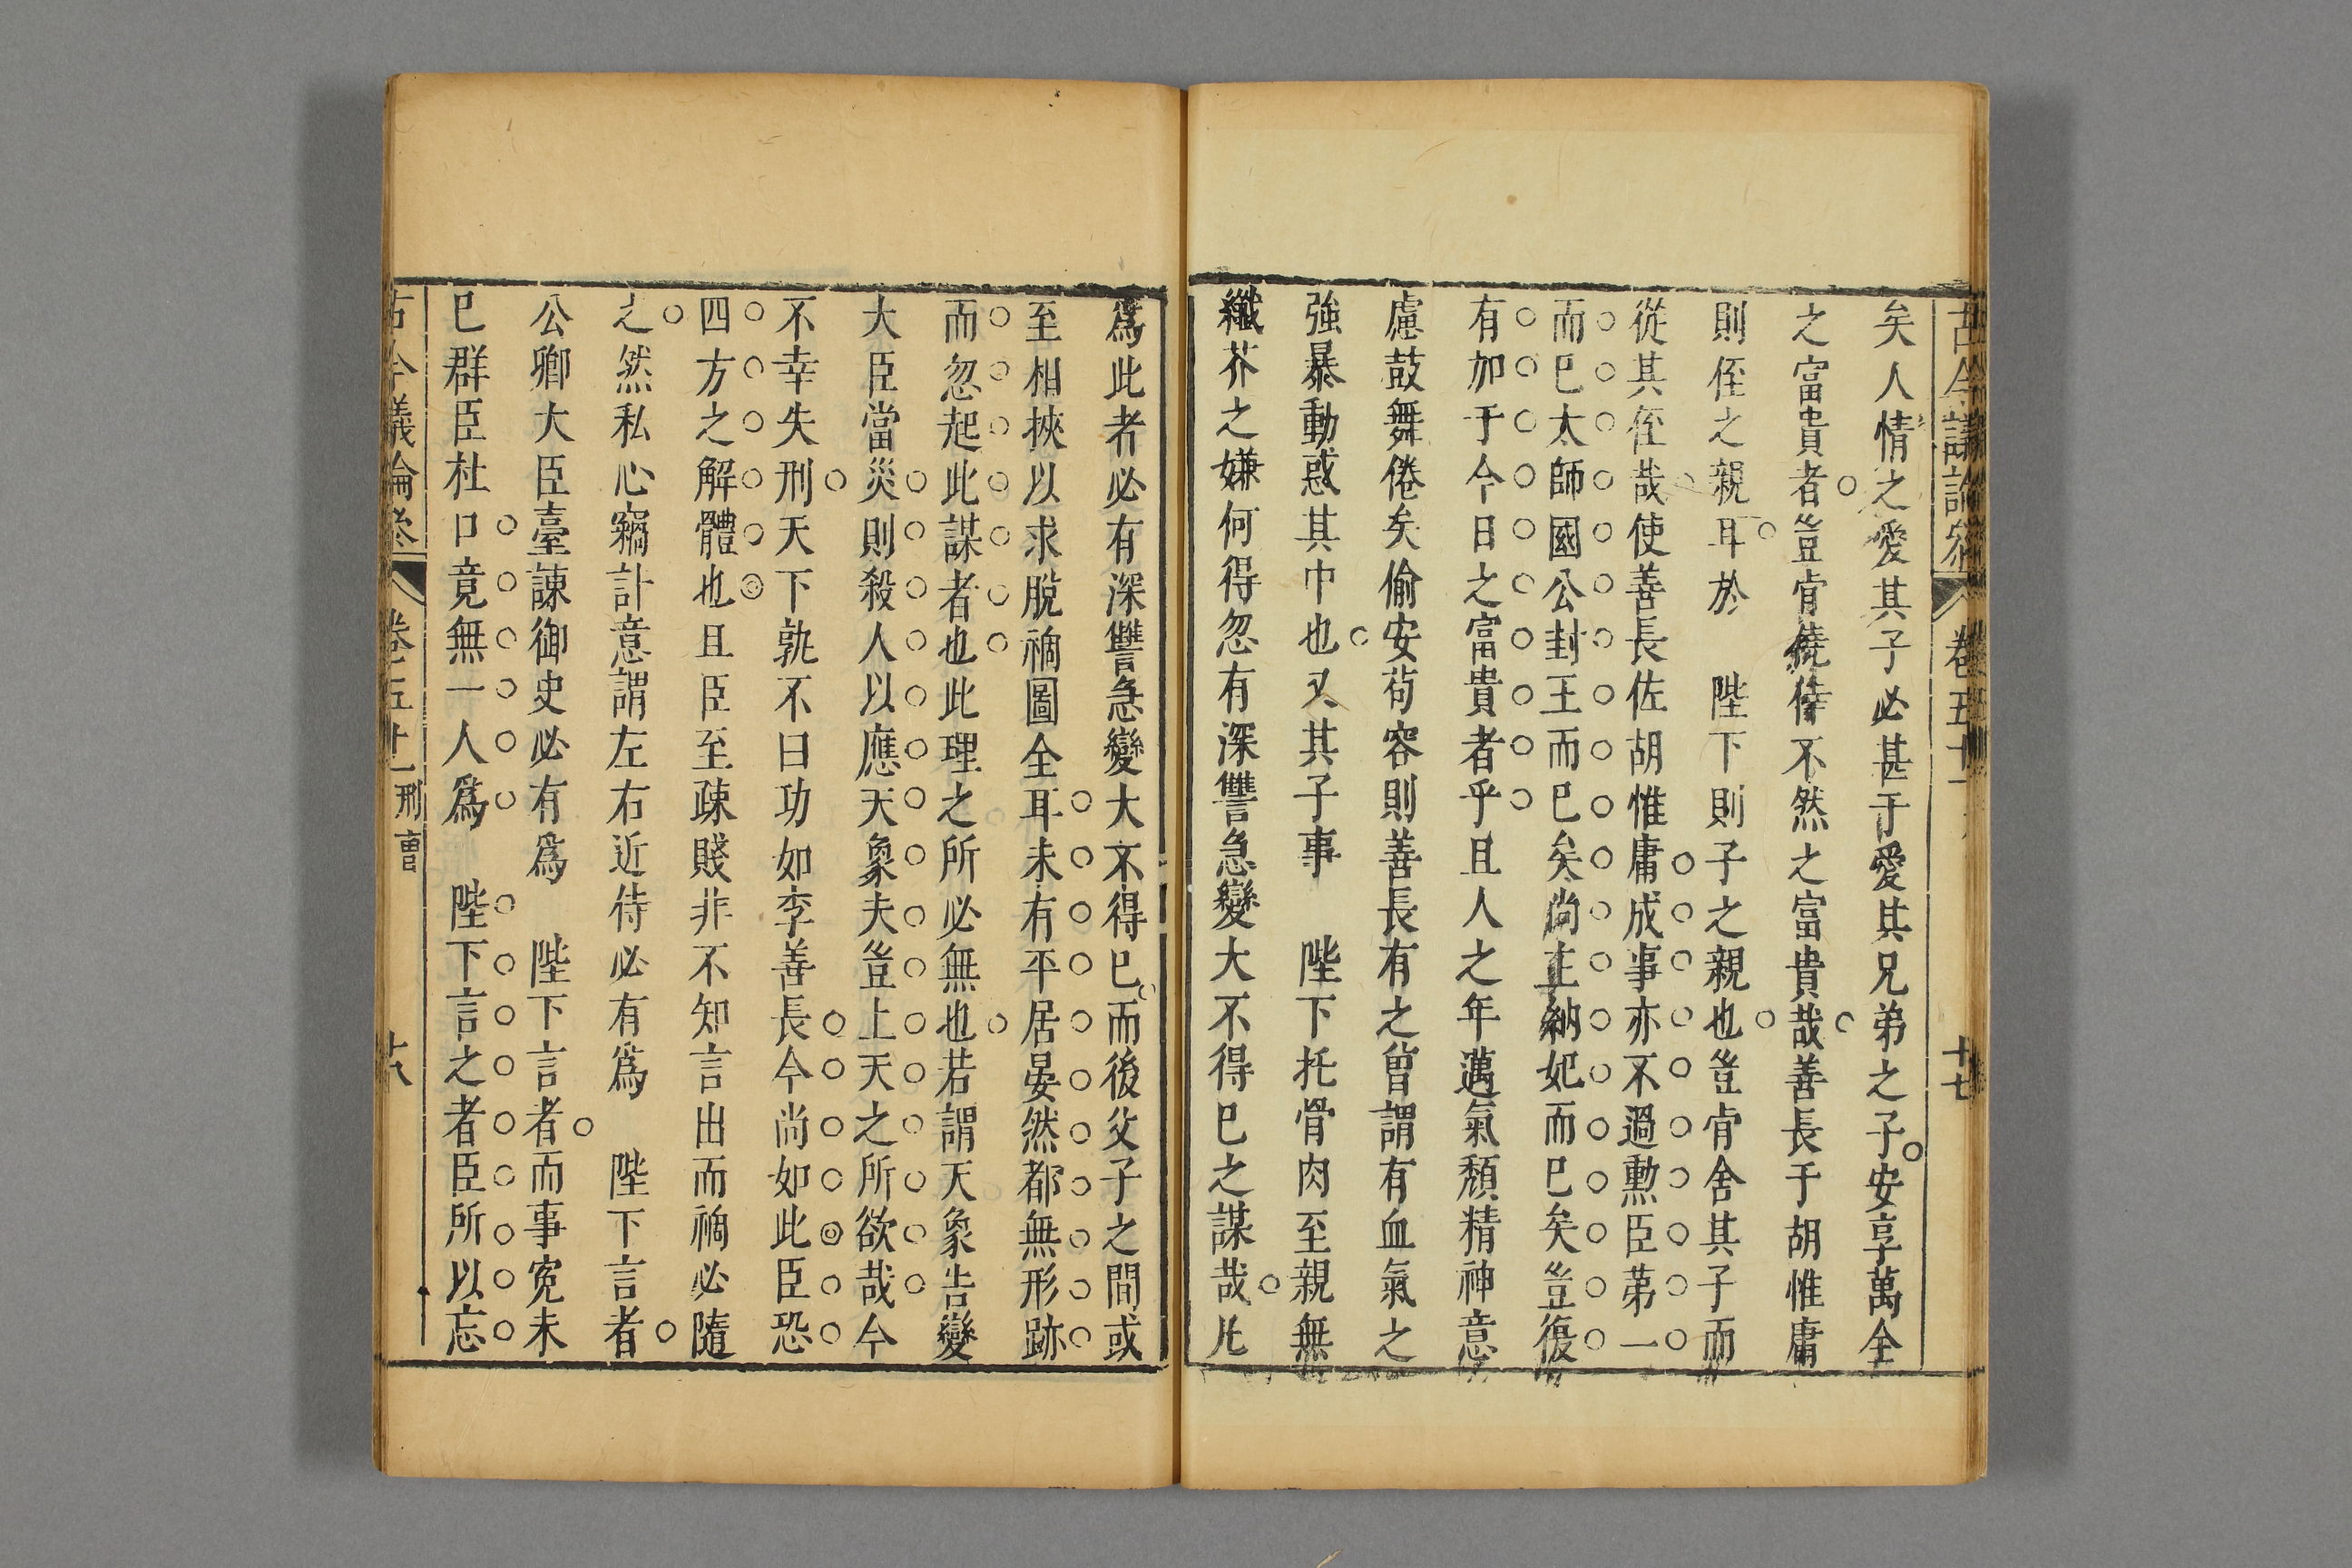 古今議論參 卷五十一 十七
矣人情之愛其子必甚于愛其兄弟之子安享萬全
之富貴者豈肯僥倖不然之富貴哉善長于胡惟庸
則侄之親耳於 陛下則子之親也豈肯舍其子而
從其侄哉使善長佐胡惟庸成事亦不過勲臣苐一
而已太師國公封王而已矣尚主納妃而已矣豈復
有加于今日之富貴者乎且人之年邁氣頹精神意
慮鼓舞倦矣偷安苟容則善長有之曾謂有血氣之
強暴動惑其中也又其子事 陛下托骨肉至親無
纖芥之嫌何得忽有深讐急變大不得已之謀哉凡
爲此者必有深讐急變大不得已而後父子之間或
至相挾以求脫禍圖全耳未有平居晏然都無形跡
而忽起此謀者也此理之所必無也若謂天象告變
大臣當災則殺人以應天象夫豈上天之所欲哉今
不幸失刑天下孰不曰功如李善長今尚如此臣恐
四方之解體也且臣至疎賤非不知言出而禍必隨
之然私心竊計意謂左右近侍必有爲 陛下言者
公卿大臣臺諫御史必有爲 陛下言者而事寃未
已群臣杜口竟無一人爲 陛下言之者臣所以忘
古今議論參 卷五十一 刑曹 十八